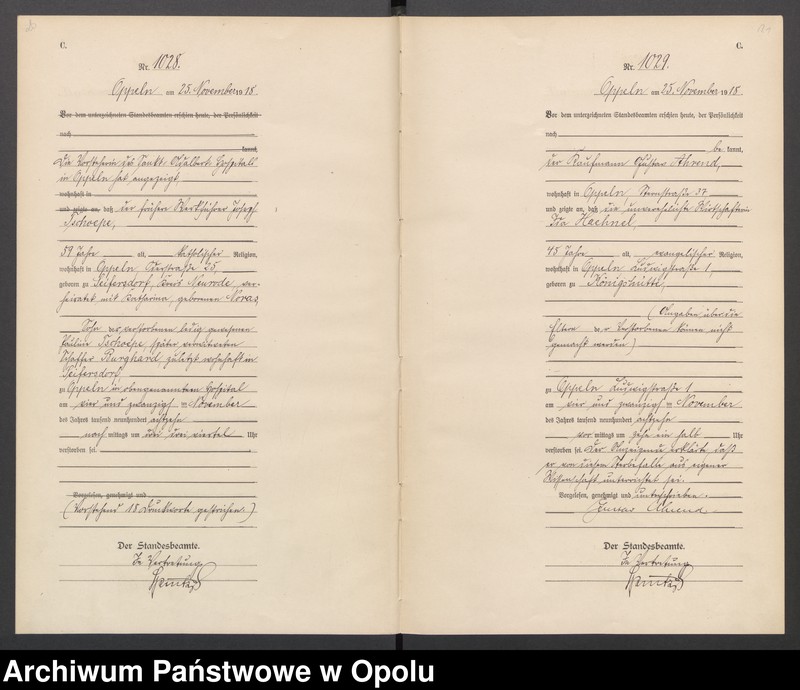 C.
Nr. 1028.
Oppeln am 25. November 1918
Vor dem unterzeichneten Standesbeamten erschien heute, der Persönlichkeit
nach
kannt,
Die Vorsteherin des Sankt Adalbert Hospitals
in Oppeln hat angezeigt,
wohnhaft in
und zeigte an, daß der frühere Werkführer Joseph
Tschoepe,
59 Jahre alt, katholischer Religion,
wohnhaft in Oppeln, Oderstraße 25,
geboren zu Seifersdorf, Kreis Neurode, ver-
heiratet mit Katharina, geborenen
Sohn der verstorbenen ledig gewesenen
Tschoepe später verwitweten
Schaffer Burghard, zuletzt wohnhaft in
Seifersdorf,
zu Oppeln in obengenanntem Hospital
am vier und zwanzigsten November
des Jahres tausend neunhundert achtzehn
nachmittags um drei viertel Uhr
verstorben sei.
Vorgelesen, genehmigt und
(Vorstehend 18 Druckworte gestrichen.)
Der Standesbeamte.
In Vertretung
C.
Nr. 1029.
Oppeln am 25. November 1918
Vor dem unterzeichneten Standesbeamten erschien heute, der Persönlichkeit
nach
be kannt,
der Kaufmann Gustav Ahrend,
wohnhaft in Oppeln, Sternstraße 37
und zeigte an, daß die unverehelichte Wirtschafterin
Ida Haehnel,
45 Jahre alt, evangelischer Religion,
wohnhaft in Oppeln Ludwigstraße 1,
geboren zu Königshütte,
(Angaben über die
Eltern der Verstorbenen können nicht
gemacht werden)
zu Oppeln Ludwigstraße 1
am vier und zwanzigsten November
des Jahres tausend neunhundert achtzehn
vormittags um zehn ein halb Uhr
verstorben sei. Der Anzeigende erklärte, daß
er von diesem Sterbefalle aus eigener
Wissenschaft unterrichtet sei.
Vorgelesen, genehmigt und unterschrieben.
Gustav Ahrend
Der Standesbeamte.
In Vertretung
Archiwum Państwowe w Opolu